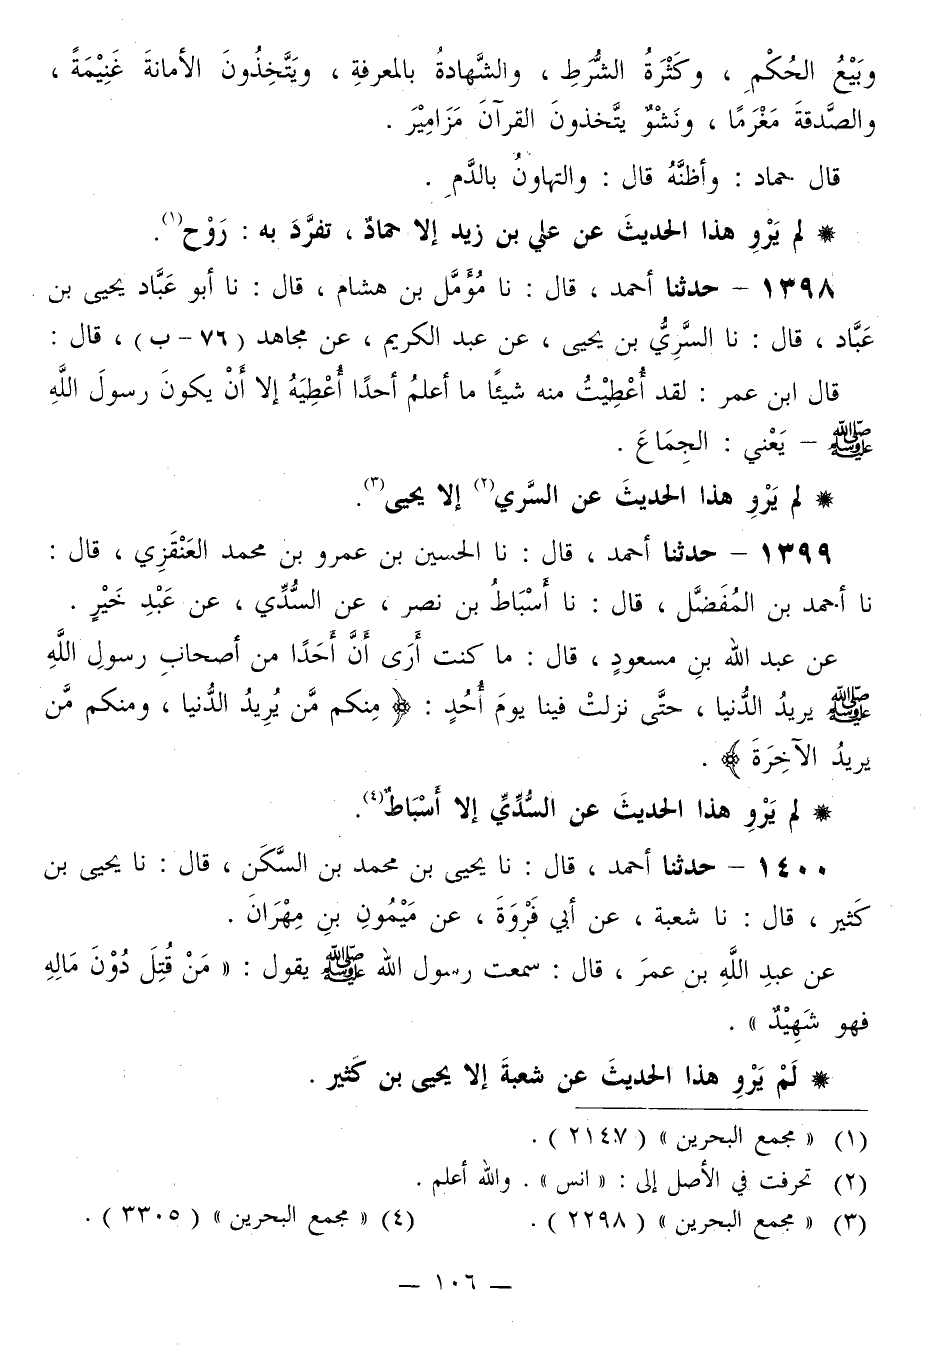 وبَيْعُ الحُكْمِ ، وكَثْرَةُ الشُّرَطِ ، والشَّهادةُ بالمعرفةِ ، ويَتَّخِذُونَ الأمانةَ غَنِيْمَةً ،
والصَّدقةَ مَغْرَمًا ، ونَشْوٌ يتَّخذونَ القرآنَ مَزَامِيْرَ .
قال حماد : وأظنَّهُ قال : والتهاونُ بالدَّمِ .
* لم يَرْوِ هذا الحديثَ عن علي بن زيد إلا حمادٌ ، تفرَّدَ به : رَوْح(١).
١٣٩٨ – حدثنا أحمد ، قال : نا مُؤَمَّل بن هشام ، قال : نا أبو عَبَّاد يحيى بن
عَبَّاد ، قال : نا السَّرِيُّ بن يحيى ، عن عبد الكريم ، عن مجاهد ( ٧٦ – ب ) ، قال :
قال ابن عمر : لقد أُعْطِيْتُ منه شيئًا ما أعلمُ أحدًا أُعْطِيَهُ إلا أَنْ يكونَ رسولَ اللَّهِ
ﷺ – يَعْني : الجِمَاعَ .
* لم يَرْوِ هذا الحديثَ عن السَّري(٢) إلا يحيى(٣).
١٣٩٩ – حدثنا أحمد ، قال : نا الحسين بن عمرو بن محمد العَنْقَزِي ، قال :
نا أحمد بن المُفَضَّل ، قال : نا أَسْبَاطُ بن نصر ، عن السُّدِّي ، عن عَبْدِ خَيْرٍ .
عن عبد الله بنِ مسعودٍ ، قال : ما كنت أَرَى أَنَّ أَحَدًا من أصحابِ رسولِ اللَّهِ
ﷺ يريدُ الدُّنيا ، حتَّى نزلتْ فينا يومَ أُحُدٍ : ﴿ مِنكم مَّن يُرِيدُ الدُّنيا ، ومنكم مَّن
يريدُ الآخِرَةَ ﴾ .
* لم يَرْوِ هذا الحديثَ عن السُّدِّيِّ إلا أَسْبَاطٌ(٤).
١٤٠٠ – حدثنا أحمد ، قال : نا يحيى بن محمد بن السَّكَن ، قال : نا يحيى بن
كَثير ، قال : نا شعبة ، عن أبي فَرْوَةَ ، عن مَيْمُونِ بنِ مِهْرَانَ .
عن عبدِ اللَّهِ بن عمرَ ، قال : سمعت رسول الله ﷺ يقول : « مَنْ قُتِلَ دُوْنَ مَالِهِ
فهو شَهِيْدٌ » .
* لَمْ يَرْوِ هذا الحديثَ عن شعبةَ إلا يحيى بن كَثير .
(١) « مجمع البحرين » ( ٢١٤٧ ) .
(٢) تحرفت في الأصل إلى : « انس » . والله أعلم .
(٣) « مجمع البحرين » ( ٢٢٩٨ ) . (٤) « مجمع البحرين » ( ٣٣٠٥ ) .
– ١٠٦ –